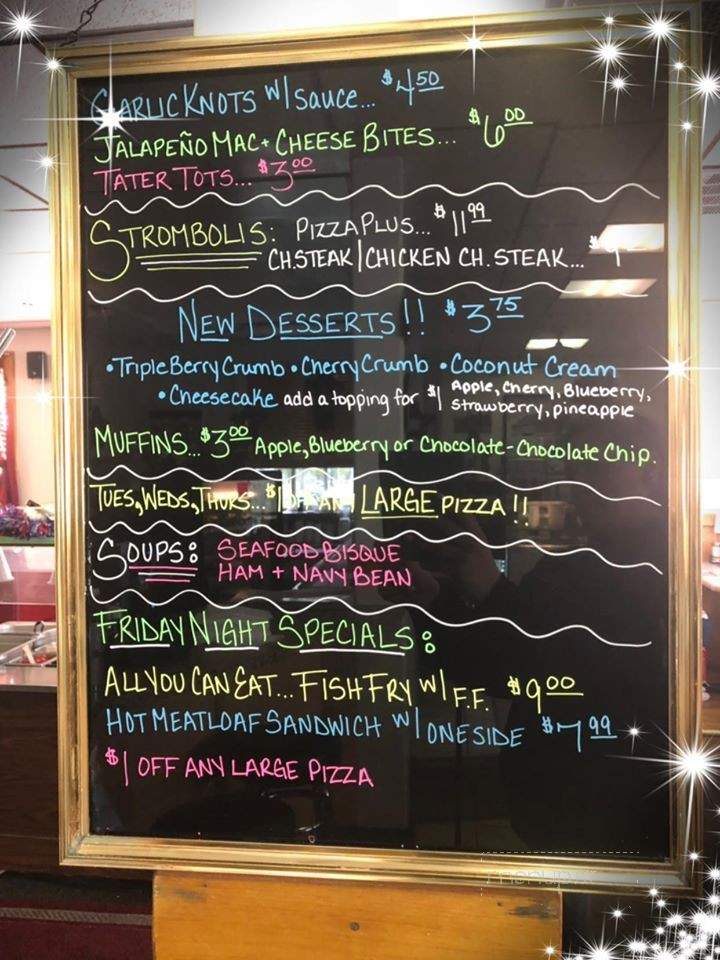 GARLIC KNOTS W/ SAUCE... $4.50
JALAPEÑO MAC + CHEESE BITES... $6.00
TATER TOTS... $3.00
STROMBOLIS: PIZZA PLUS... $11.99
CH. STEAK / CHICKEN CH. STEAK...
NEW DESSERTS!! $3.75
• Triple Berry Crumb • Cherry Crumb • Coconut Cream
• Cheesecake add a topping for $1 Apple, Cherry, Blueberry,
Strawberry, pineapple
MUFFINS... $3.00 Apple, Blueberry or Chocolate-Chocolate Chip.
TUES, WEDS, THURS... $1 OFF ANY LARGE PIZZA!!
SOUPS: SEAFOOD BISQUE
HAM + NAVY BEAN
FRIDAY NIGHT SPECIALS:
ALL YOU CAN EAT... FISH FRY W/ F.F. $9.00
HOT MEATLOAF SANDWICH W/ ONE SIDE $7.99
$1 OFF ANY LARGE PIZZA